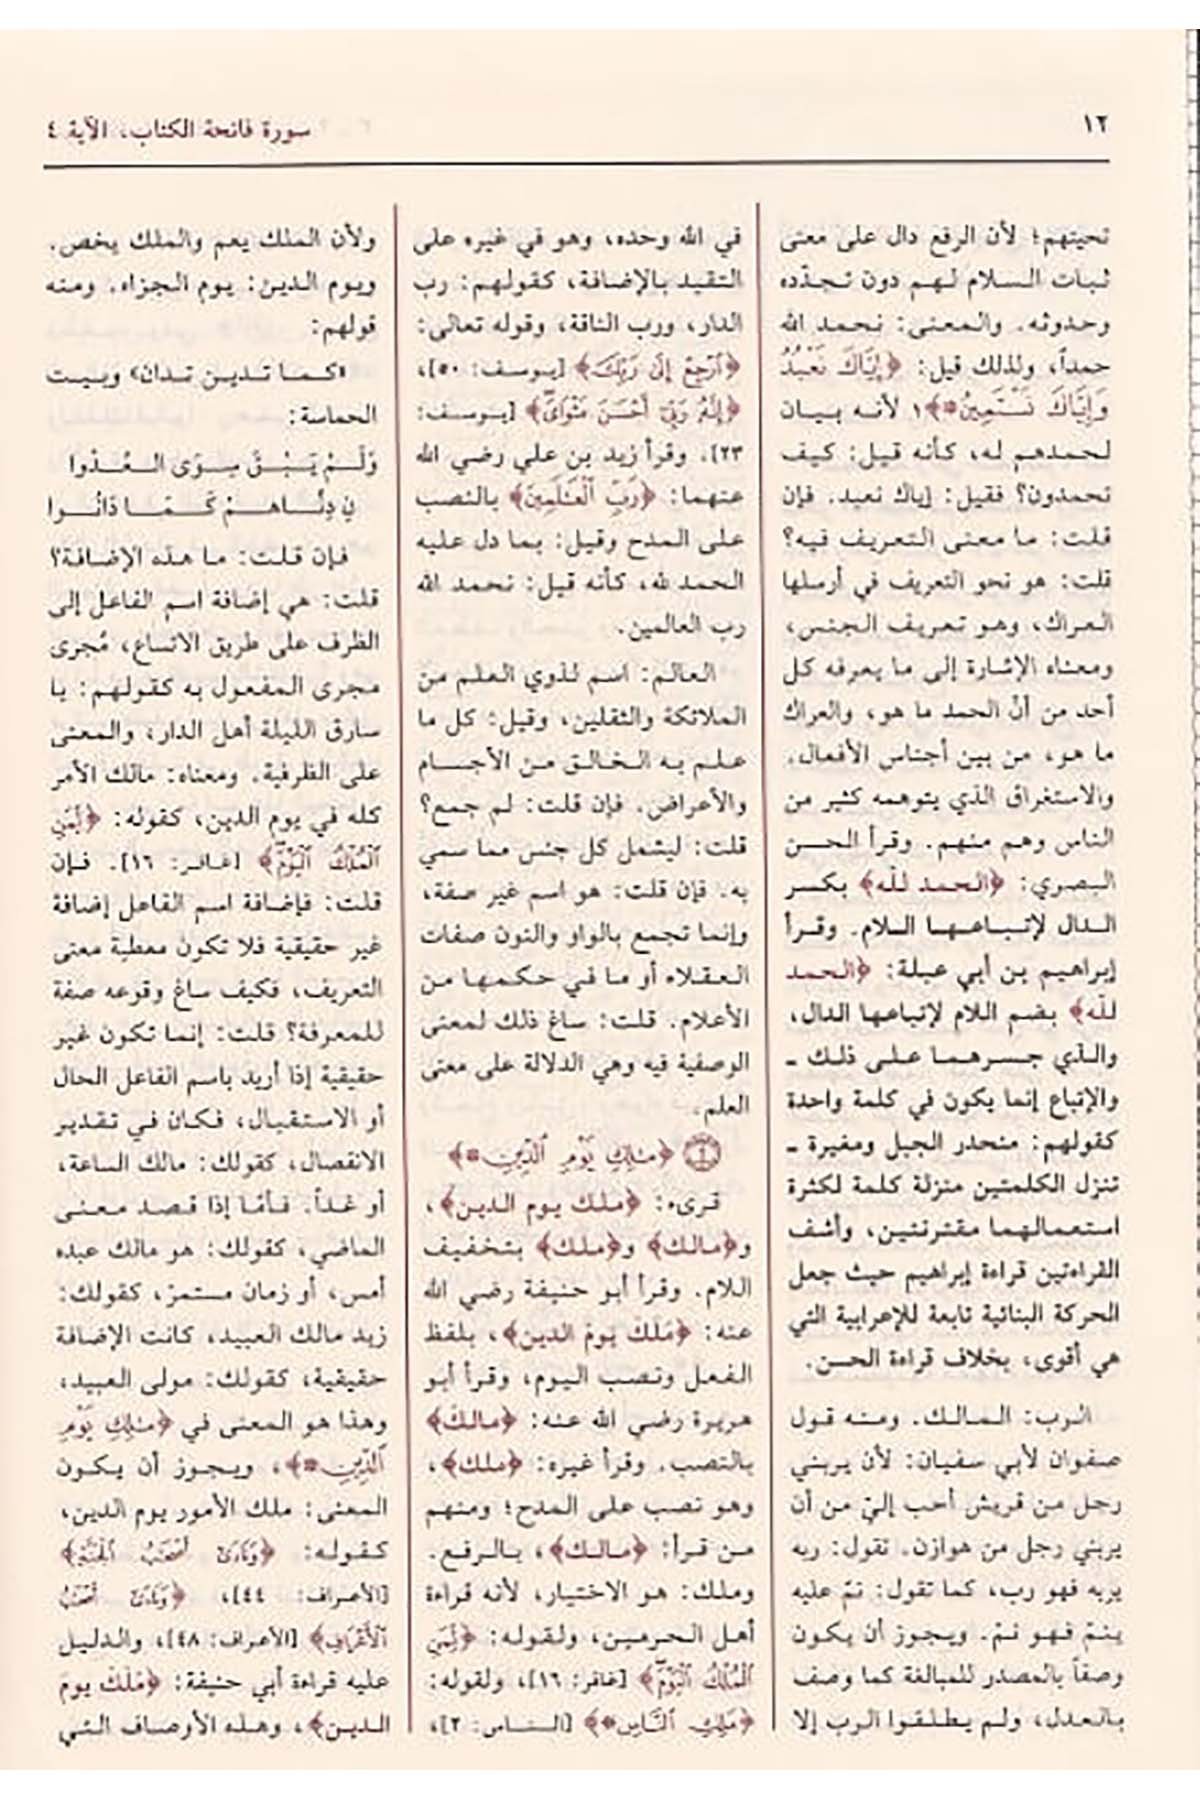 ١٢
سورة فاتحة الكتاب، الآية ٤
تحيتهم؛ لأن الرفع دال على معنى
ثبات السلام لهم دون تجدّده
وحدوثه. والمعنى: نحمد الله
حمداً، ولذلك قيل: ﴿إِيَّاكَ نَعْبُدُ
وَإِيَّاكَ نَسْتَعِينُ﴾ لأنه بيان
لحمدهم له، كأنه قيل: كيف
تحمدون؟ فقيل: إياك نعبد. فإن
قلت: ما معنى التعريف فيه؟
قلت: هو نحو التعريف في أرسلها
العراك، وهو تعريف الجنس،
ومعناه الإشارة إلى ما يعرفه كل
أحد من أنّ الحمد ما هو، والعراك
ما هو، من بين أجناس الأفعال.
والاستغراق الذي يتوهمه كثير من
الناس وهم منهم. وقرأ الحسن
البصري: ﴿الحمد لله﴾ بكسر
الدال لإتباعها اللام. وقرأ
إبراهيم بن أبي عبلة: ﴿الحمد
لله﴾ بضم اللام لإتباعها الدال،
والذي جسرهما على ذلك ـ
والإتباع إنما يكون في كلمة واحدة
كقولهم: منحدر الجبل ومغيرة ـ
تنزل الكلمتين منزلة كلمة لكثرة
استعمالهما مقترنتين، وأشف
القراءتين قراءة إبراهيم حيث جعل
الحركة البنائية تابعة للإعرابية التي
هي أقوى، بخلاف قراءة الحسن.
الرب: المالك. ومنه قول
صفوان لأبي سفيان: لأن يربني
رجل من قريش أحب إليّ من أن
يربني رجل من هوازن. تقول: ربه
يربه فهو رب، كما تقول: نمّ عليه
ينمّ فهو نمّ. ويجوز أن يكون
وصفاً بالمصدر للمبالغة كما وصف
بالعدل، ولم يطلقوا الرب إلا
في الله وحده، وهو في غيره على
التقيد بالإضافة، كقولهم: رب
الدار، ورب الناقة، وقوله تعالى:
﴿ٱرْجِعْ إِلَىٰ رَبِّكَ﴾ [يوسف: ٥٠]،
﴿إِنَّهُۥ رَبِّىٓ أَحْسَنَ مَثْوَاىَ﴾ [يوسف:
٢٣]. وقرأ زيد بن علي رضي الله
عنهما: ﴿رَبِّ ٱلْعَٰلَمِينَ﴾ بالنصب
على المدح وقيل: بما دل عليه
الحمد لله، كأنه قيل: نحمد الله
رب العالمين.
العالم: اسم لذوي العلم من
الملائكة والثقلين، وقيل: كل ما
علم به الخالق من الأجسام
والأعراض. فإن قلت: لم جمع؟
قلت: ليشمل كل جنس مما سمي
به. فإن قلت: هو اسم غير صفة،
وإنما تجمع بالواو والنون صفات
العقلاء أو ما في حكمها من
الأعلام. قلت: ساغ ذلك لمعنى
الوصفية فيه وهي الدلالة على معنى
العلم.
﴿مَٰلِكِ يَوْمِ ٱلدِّينِ﴾
قرىء: ﴿ملك يوم الدين﴾،
و﴿مالك﴾ و﴿ملك﴾ بتخفيف
اللام. وقرأ أبو حنيفة رضي الله
عنه: ﴿مَلَكَ يومَ الدين﴾، بلفظ
الفعل ونصب اليوم، وقرأ أبو
هريرة رضي الله عنه: ﴿مالكَ﴾
بالنصب. وقرأ غيره: ﴿ملك﴾،
وهو نصب على المدح؛ ومنهم
من قرأ: ﴿مالك﴾، بالرفع.
وملك: هو الاختيار، لأنه قراءة
أهل الحرمين، ولقوله: ﴿لِّمَنِ
ٱلْمُلْكُ ٱلْيَوْمَ﴾ [غافر: ١٦]، ولقوله:
﴿مَلِكِ ٱلنَّاسِ﴾ [الناس: ٢]،
ولأن الملك يعم والملك يخص.
ويوم الدين: يوم الجزاء. ومنه
قولهم:
«كما تدين تدان» وبيت
الحماسة:
وَلَمْ يَبْقَ سِوَى العُدْوا
نِ دِنَّاهمْ كَمَا دَانُوا
فإن قلت: ما هذه الإضافة؟
قلت: هي إضافة اسم الفاعل إلى
الظرف على طريق الاتساع، مُجرى
مجرى المفعول به كقولهم: يا
سارق الليلة أهل الدار، والمعنى
على الظرفية. ومعناه: مالك الأمر
كله في يوم الدين، كقوله: ﴿لِّمَنِ
ٱلْمُلْكُ ٱلْيَوْمَ﴾ [غافر: ١٦]. فإن
قلت: فإضافة اسم الفاعل إضافة
غير حقيقية فلا تكون معطية معنى
التعريف، فكيف ساغ وقوعه صفة
للمعرفة؟ قلت: إنما تكون غير
حقيقية إذا أريد باسم الفاعل الحال
أو الاستقبال، فكان في تقدير
الانفصال، كقولك: مالك الساعة،
أو غداً. فأمّا إذا قصد معنى
الماضي، كقولك: هو مالك عبده
أمس، أو زمان مستمرّ، كقولك:
زيد مالك العبيد، كانت الإضافة
حقيقية، كقولك: مولى العبيد،
وهذا هو المعنى في ﴿مَٰلِكِ يَوْمِ
ٱلدِّينِ﴾، ويجوز أن يكون
المعنى: ملك الأمور يوم الدين،
كقوله: ﴿وَنَادَىٰٓ أَصْحَٰبُ ٱلْجَنَّةِ﴾
[الأعراف: ٤٤]، ﴿وَنَادَىٰٓ أَصْحَٰبُ
ٱلْأَعْرَافِ﴾ [الأعراف: ٤٨]، والدليل
عليه قراءة أبي حنيفة: ﴿مَلَكَ يومَ
الدين﴾، وهذه الأوصاف التي